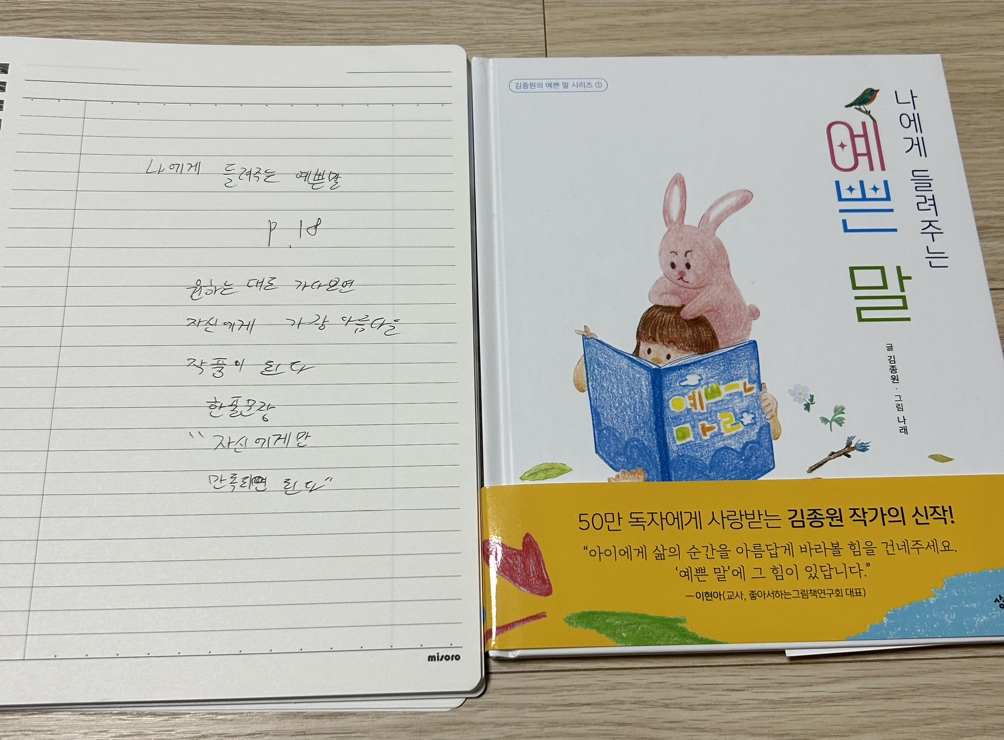 나에게 들려주는 예쁜말
P.18
원하는 대로 가다보면
자신에게 가장 아름다운
작품이 된다
한줄문장
"자신에게만
만족하면 된다"
misoro
김종원의 예쁜 말 시리즈 ①
나에게 들려주는
예쁜 말
글 김종원 · 그림 나래
예쁘ㄴ
마ㄹ
50만 독자에게 사랑받는 김종원 작가의 신작!
"아이에게 삶의 순간을 아름답게 바라볼 힘을 건네주세요.
'예쁜 말'에 그 힘이 있답니다."
—이현아(교사, 좋아서하는그림책연구회 대표)